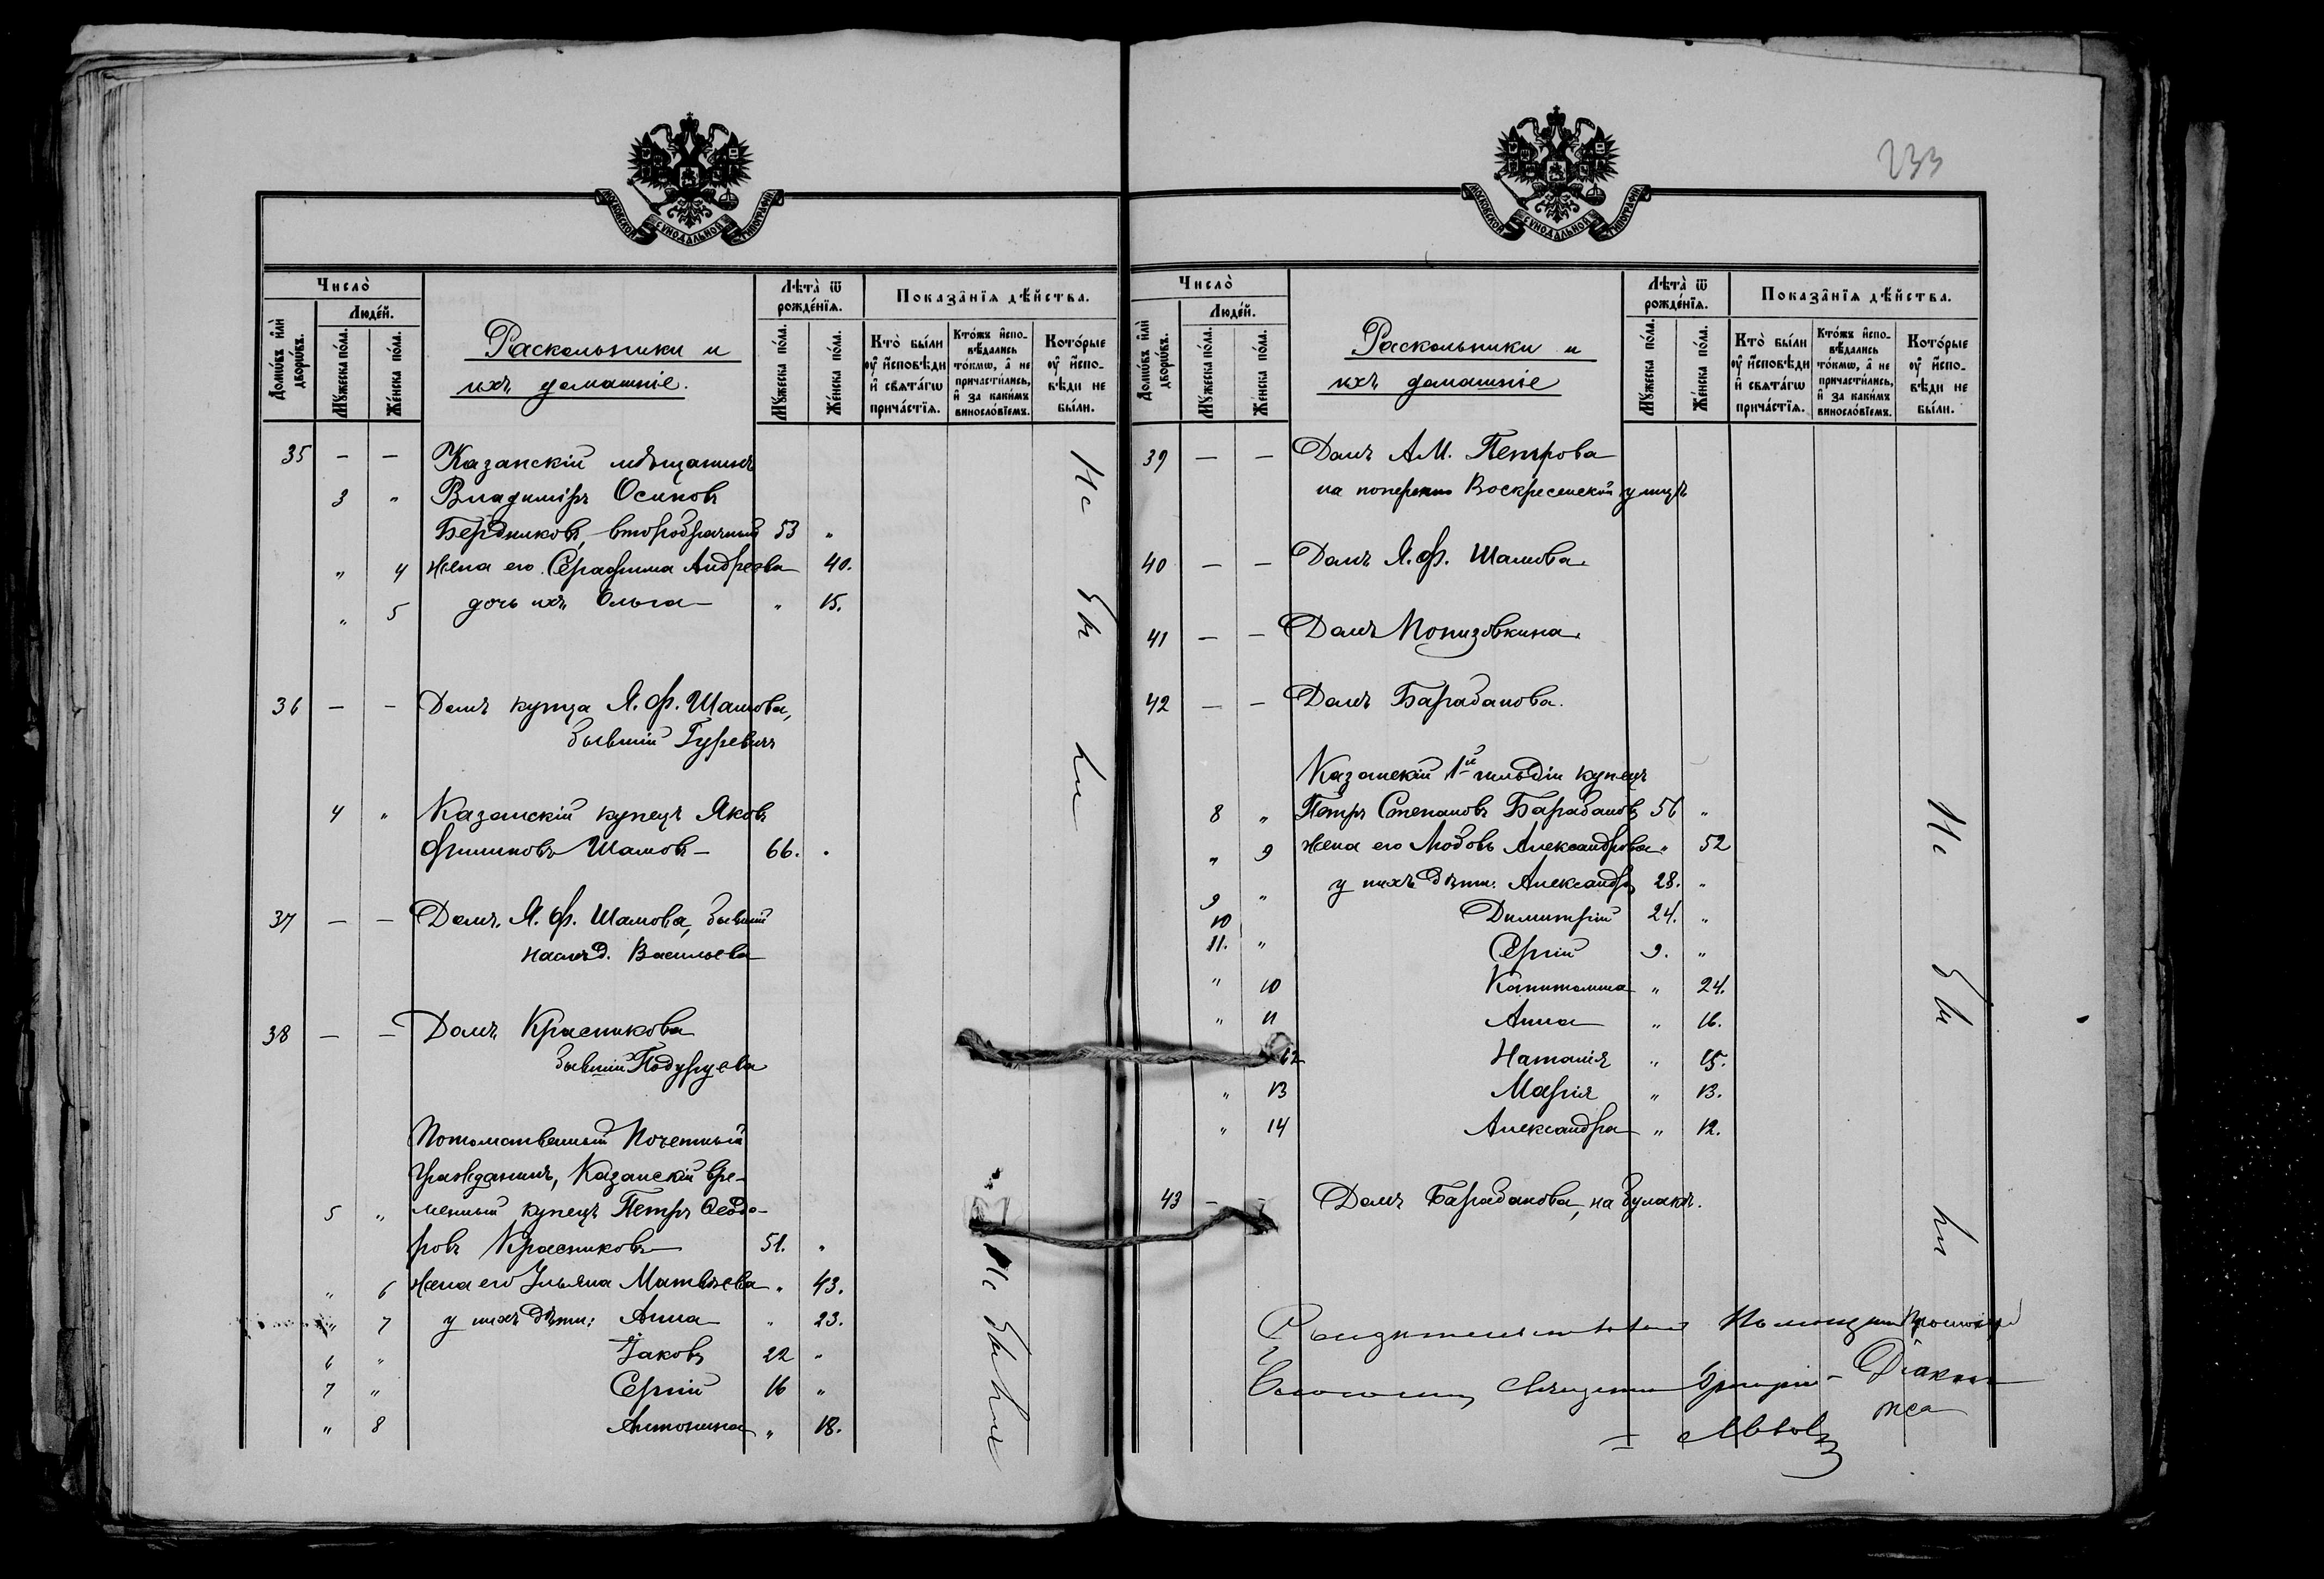 МОСКОВСКОЙ СѴНОДАЛЬНОЙ ТИПОГРАФІИ
Число̀
Людéй.
Домѡ́въ и҆лѝ дворѡ́въ.
Мꙋ́жеска пóла.
Жéнска пóла.
Раскольники и
ихъ домашніе.
Лѣта̀ ѿ рождéнїѧ.
Мꙋ́жеска пóла.
Жéнска пóла.
Показа̑нїѧ дѣ́йства.
Кто̀ бы́ли ᲂу҆ и҆́сповѣди и҆ свѧта́гѡ прича́стїѧ.
Кто́жъ и҆спо-вѣ́дались то́кмѡ, а҆ не причасти́лись, и҆ за каки́мъ винословїемъ.
Кото́рые ᲂу҆ и҆́спо-вѣди не бы́ли.
35 — — Казанскій мѣщанинъ
3 " Владиміръ Осиповъ
Бердниковъ, второбрачный 53 "
" 4 жена его Серафима Андреева 40.
" 5 дочь ихъ Ольга " 15.
36 — — Домъ купца Я. Ф. Шамова,
бывшій Гуревичъ
4 " Казанскій купецъ Яковъ
Филиповъ Шамовъ — 66. "
37 — — Домъ Я. Ф. Шамова, бывшій
наслѣд. Васильева
38 — — Домъ Красникова
бывшій Подуруева
Потомственный Почетный
Гражданинъ, Казанскій вре-
5 " менный купецъ Петръ Ѳеодо-
ровъ Красниковъ 51. "
" 6 жена его Ульяна Матвѣева " 43.
" 7 у нихъ дѣти: Анна " 23.
6 " Іаковъ 22 "
7 " Сергій 16 "
" 8 Антонина " 18.
Не были
Не были
233
МОСКОВСКОЙ СѴНОДАЛЬНОЙ ТИПОГРАФІИ
Число̀
Людéй.
Домѡ́въ и҆лѝ дворѡ́въ.
Мꙋ́жеска пóла.
Жéнска пóла.
Раскольники и
ихъ домашніе
Лѣта̀ ѿ рождéнїѧ.
Мꙋ́жеска пóла.
Жéнска пóла.
Показа̑нїѧ дѣ́йства.
Кто̀ бы́ли ᲂу҆ и҆́сповѣди и҆ свѧта́гѡ прича́стїѧ.
Кто́жъ и҆спо-вѣ́дались то́кмѡ, а҆ не причасти́лись, и҆ за каки́мъ винословїемъ.
Кото́рые ᲂу҆ и҆́спо-вѣди не бы́ли.
39 — — Домъ А М. Петрова
на Воскресенской улицѣ
40 — — Домъ Я. Ф. Шамова.
41 — — Домъ Понизовкина.
42 — — Домъ Барабанова.
Казанскій 1й гильдіи купецъ
8 " Петръ Степановъ Барабановъ 56 "
" 9 жена его Любовь Александрова " 52
9 " у нихъ дѣти: Александръ 28. "
10 Димитрій 24. "
11. " Сергій 9. "
" 10 Капитолина " 24.
" 11 Анна " 16.
12 Наталія " 15.
" 13 Марія " 13.
" 14 Александра " 12.
43 — — Домъ Барабанова, на Булакѣ.
Не были
Діакон